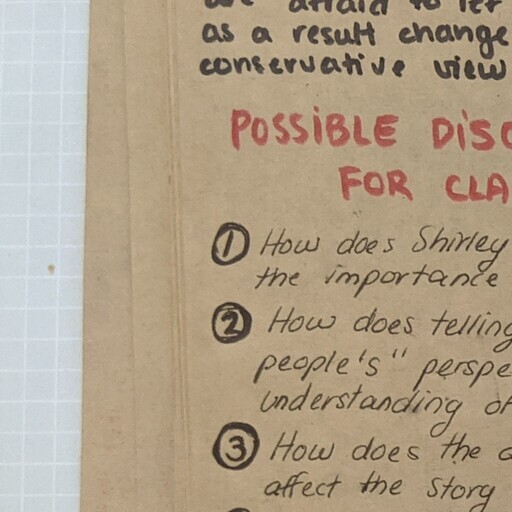 are afraid to let
as a result change
conservative view
POSSIBLE
FOR
① How does Shirley
the importance
② How does telling
people's" perspe
understanding of
③ How does the
affect the story